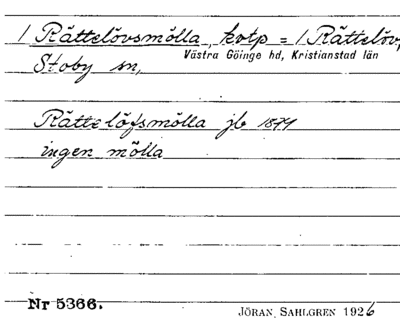 1 Rättelövsmölla, kvtp = 1 Rättelöv,
Västra Göinge hd, Kristianstad län
Stoby sn,
Rättelöfsmölla jb 1877
ingen mölla
Nr 5366.
JÖRAN SAHLGREN 1926